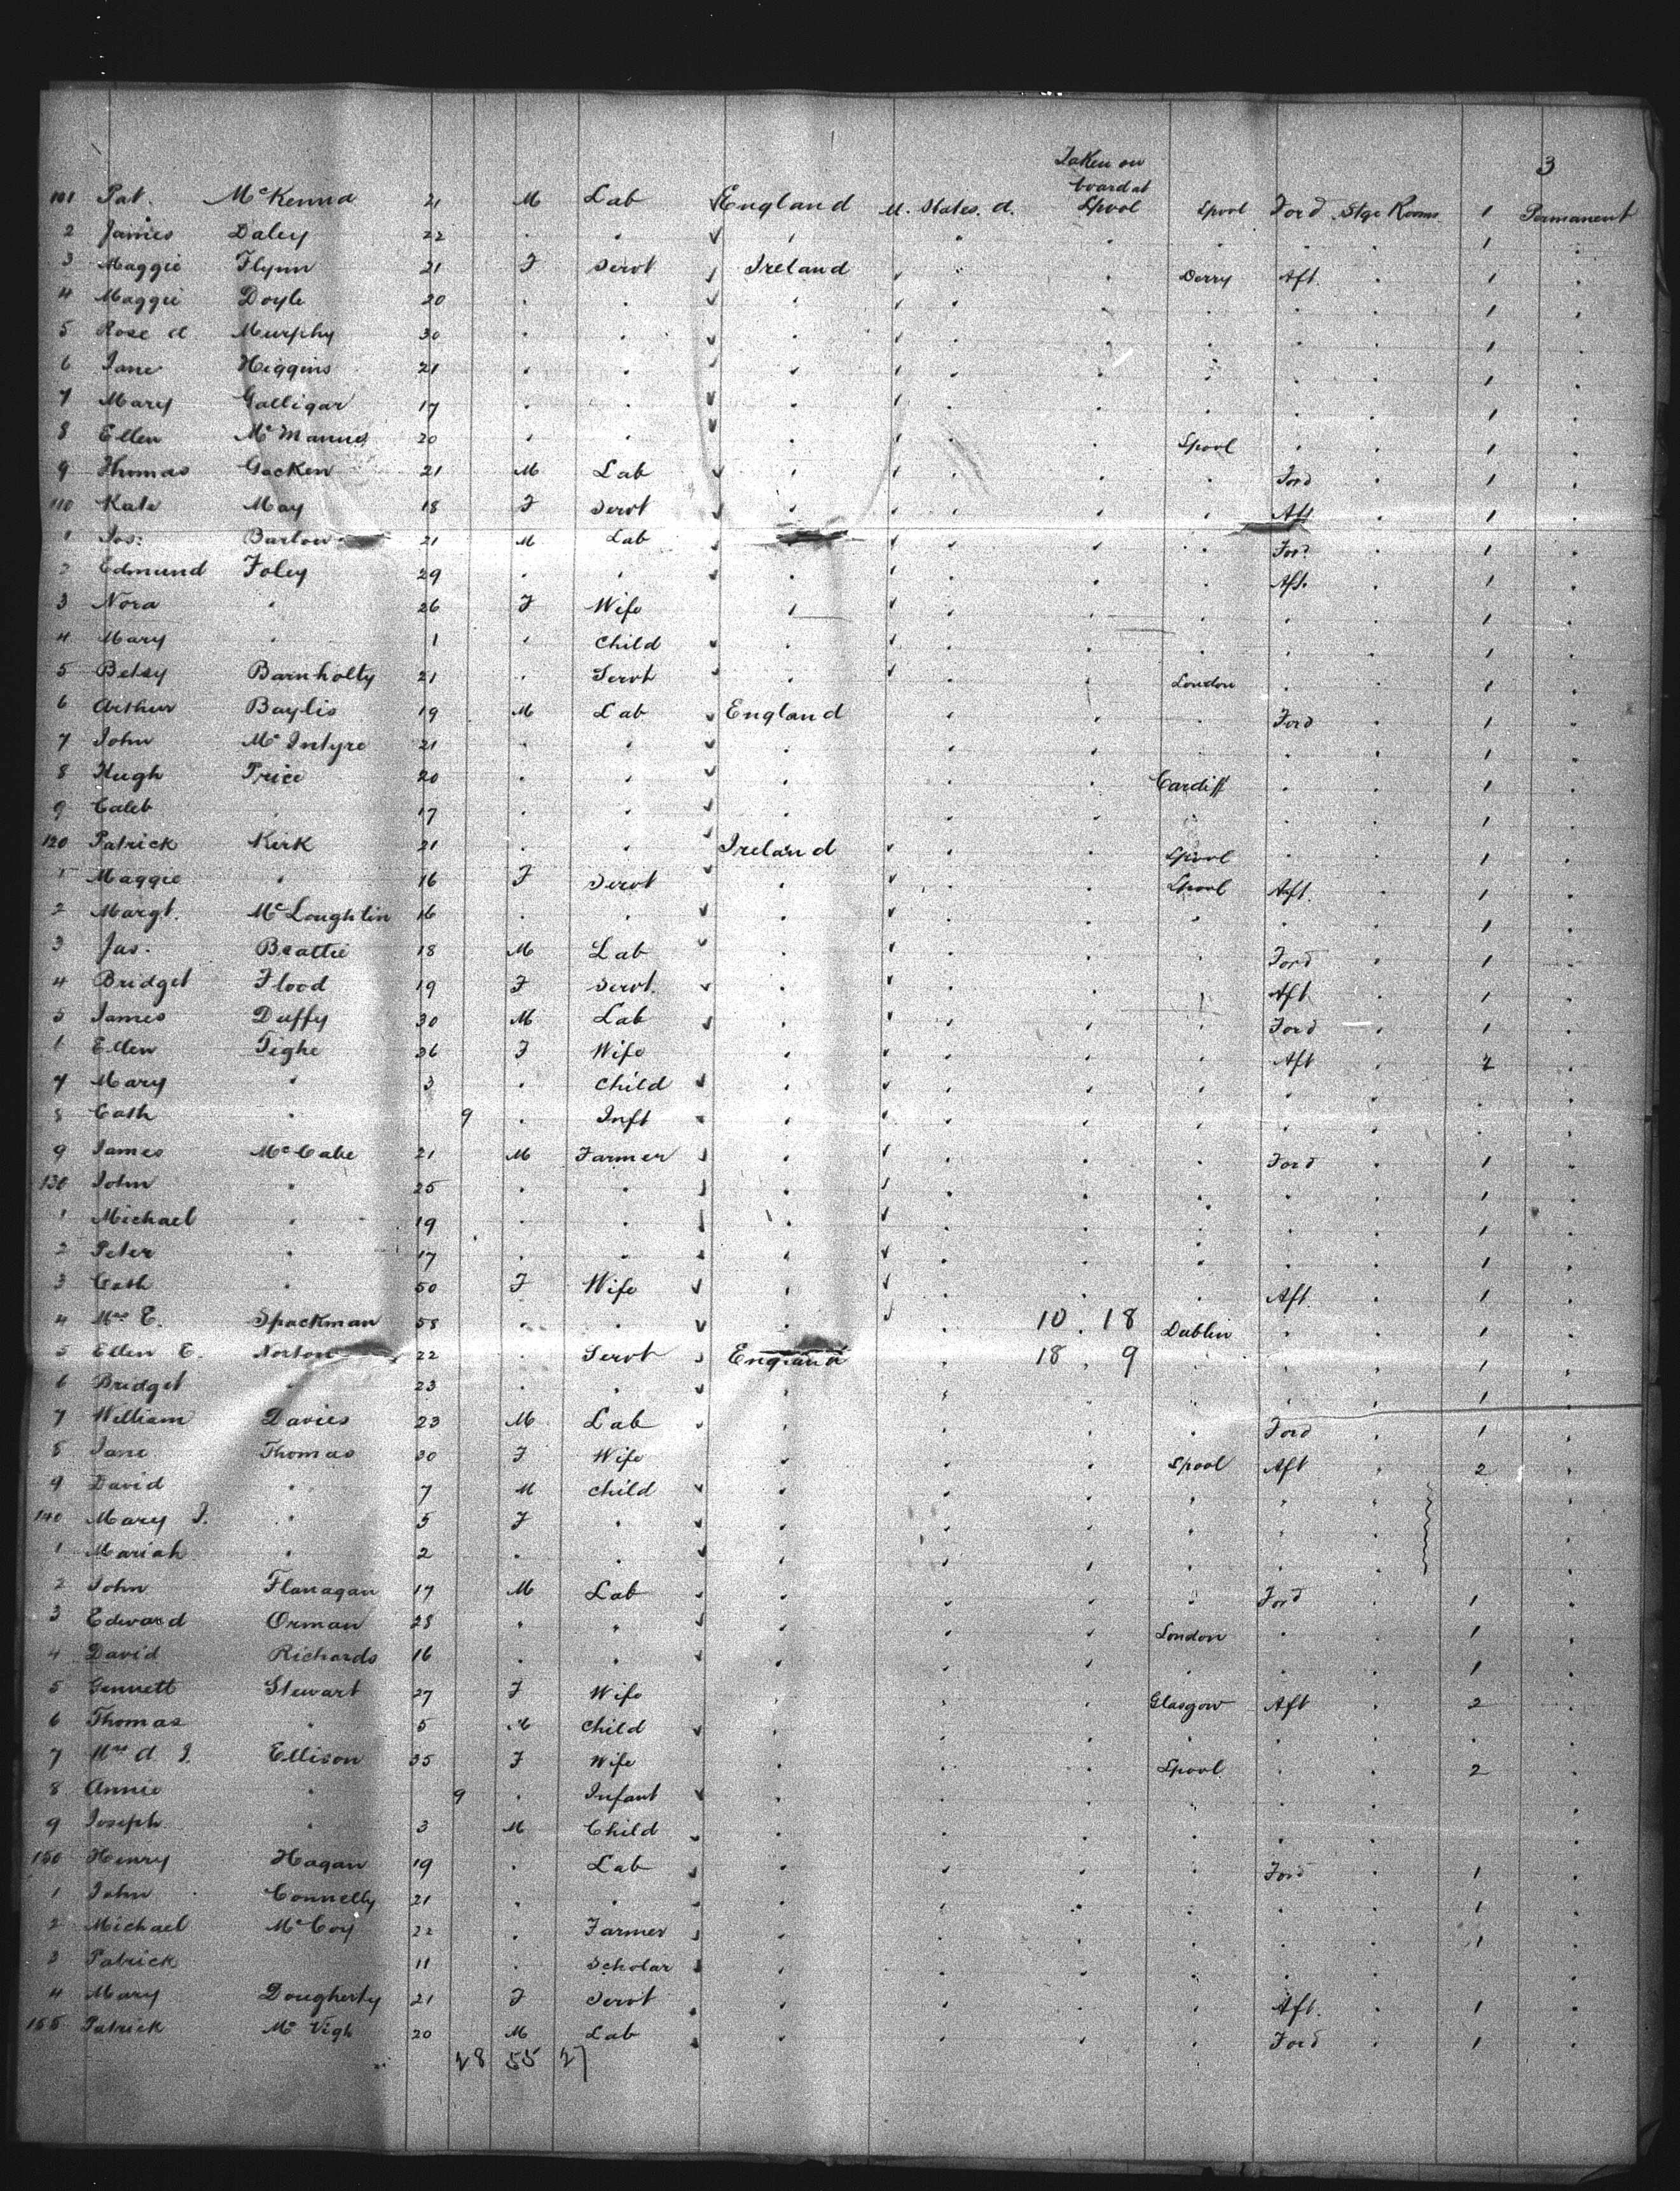 3
Taken on
board at
101 Pat. McKenna 21 M Lab England U. States. A. Lpool Lpool Ford Stge Rooms 1 Permanent
2 James Daley 22 " " " " " " " " 1 "
3 Maggie Flynn 21 F Servt Ireland " " Derry Aft. " 1 "
4 Maggie Doyle 20 " " " " " " " " 1 "
5 Rose A. Murphy 30 " " " " " " " " 1 "
6 Jane Higgins 21 " " " " " " " " 1 "
7 Mary Galligar 17 " " " " " " " " 1 "
8 Ellen McManus 20 " " " " " Lpool " " 1 "
9 Thomas Gacken 21 M Lab " " " " Ford " 1 "
110 Kate May 18 F Servt " " " " Aft " 1 "
1 Jos: Barlow 21 M Lab " " " Ford " 1 "
2 Edmund Foley 29 " " " " " " Aft. " 1 "
3 Nora " 26 F Wife " " " " " " 1 "
4 Mary " 1 " Child " " " " " " 1 "
5 Betsy Barnholty 21 " Servt " " " London " " 1 "
6 Arthur Baylis 19 M Lab England " " " Ford " 1 "
7 John McIntyre 21 " " " " " " " " 1 "
8 Hugh Price 20 " " " " " Cardiff " " 1 "
9 Caleb " 17 " " " " " " " " 1 "
120 Patrick Kirk 21 " " Ireland " " Lpool " " 1 "
1 Maggie " 16 F Servt " " " Lpool Aft. " 1 "
2 Margt. McLoughlin 16 " " " " " " " " 1 "
3 Jas. Beattie 18 M Lab " " " " Ford " 1 "
4 Bridget Flood 19 F Servt. " " " " Aft " 1 "
5 James Duffy 30 M Lab " " " " Ford " 1 "
1 Ellen Tighe 36 F Wife " " " " Aft " 2 "
7 Mary " 3 " Child " " " " " " " "
8 Cath " 9 " Inft " " " " " " " "
9 James McCabe 21 M Farmer " " " " Ford " 1 "
130 John " 25 " " " " " " " " 1 "
1 Michael " 19 " " " " " " " " 1 "
2 Peter " 17 " " " " " " " " 1 "
3 Cath " 50 F Wife " " " Aft. " 1 "
4 Mrs E. Spackman 58 " " " " 10 . 18 Dublin " " 1 "
5 Ellen E. Norton 22 " Servt England " 18 . 9 " " " 1 "
6 Bridget " 23 " " " " " " " 1 "
7 William Davies 23 M Lab " " " " Ford " 1 "
8 Jane Thomas 30 F Wife " " " Lpool Aft " 2 "
9 David " 7 M Child " " " " " "
140 Mary J. " 5 F " " " " " "
1 Mariah " 2 " " " " " " "
2 John Flanagan 17 M Lab " " " " Ford " 1 "
3 Edward Orman 28 " " " " " London " " 1 "
4 David Richards 16 " " " " " " " " 1 "
5 Gennett Stewart 27 F Wife " " " Glasgow Aft " 2 "
6 Thomas " 5 M Child " " " " " " " "
7 Mrs A J. Ellison 35 F Wife " " " Lpool " " 2 "
8 Annie " 9 " Infant " " " " " " "
9 Joseph " 3 M Child " " " " " " "
150 Henry Hagan 19 " Lab " " " " Ford " 1 "
1 John Connelly 21 " " " " " " " " 1 "
2 Michael McCoy 22 " Farmer " " " " " " 1 "
3 Patrick 11 " Scholar " " " " " " " "
4 Mary Dougherty 21 F Servt " " " " Aft. " 1 "
155 Patrick McVigh 20 M Lab " " " " Ford " 1 "
28 55 27